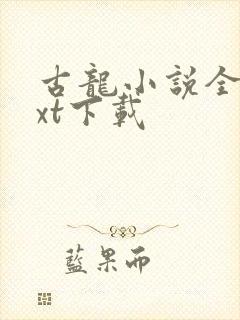 古龍小説全
xt下載
藍果而